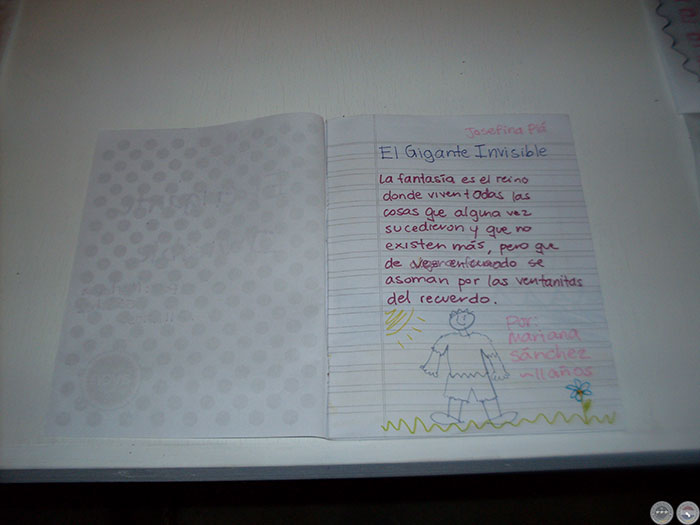 Josefina Plá
El Gigante Invisible
La fantasía es el reino
donde viven todas las
cosas que alguna vez
sucedieron y que no
existen más, pero que
de vez en cuando se
asoman por las ventanitas
del recuerdo.
Por:
Mariana
Sánchez
11 años